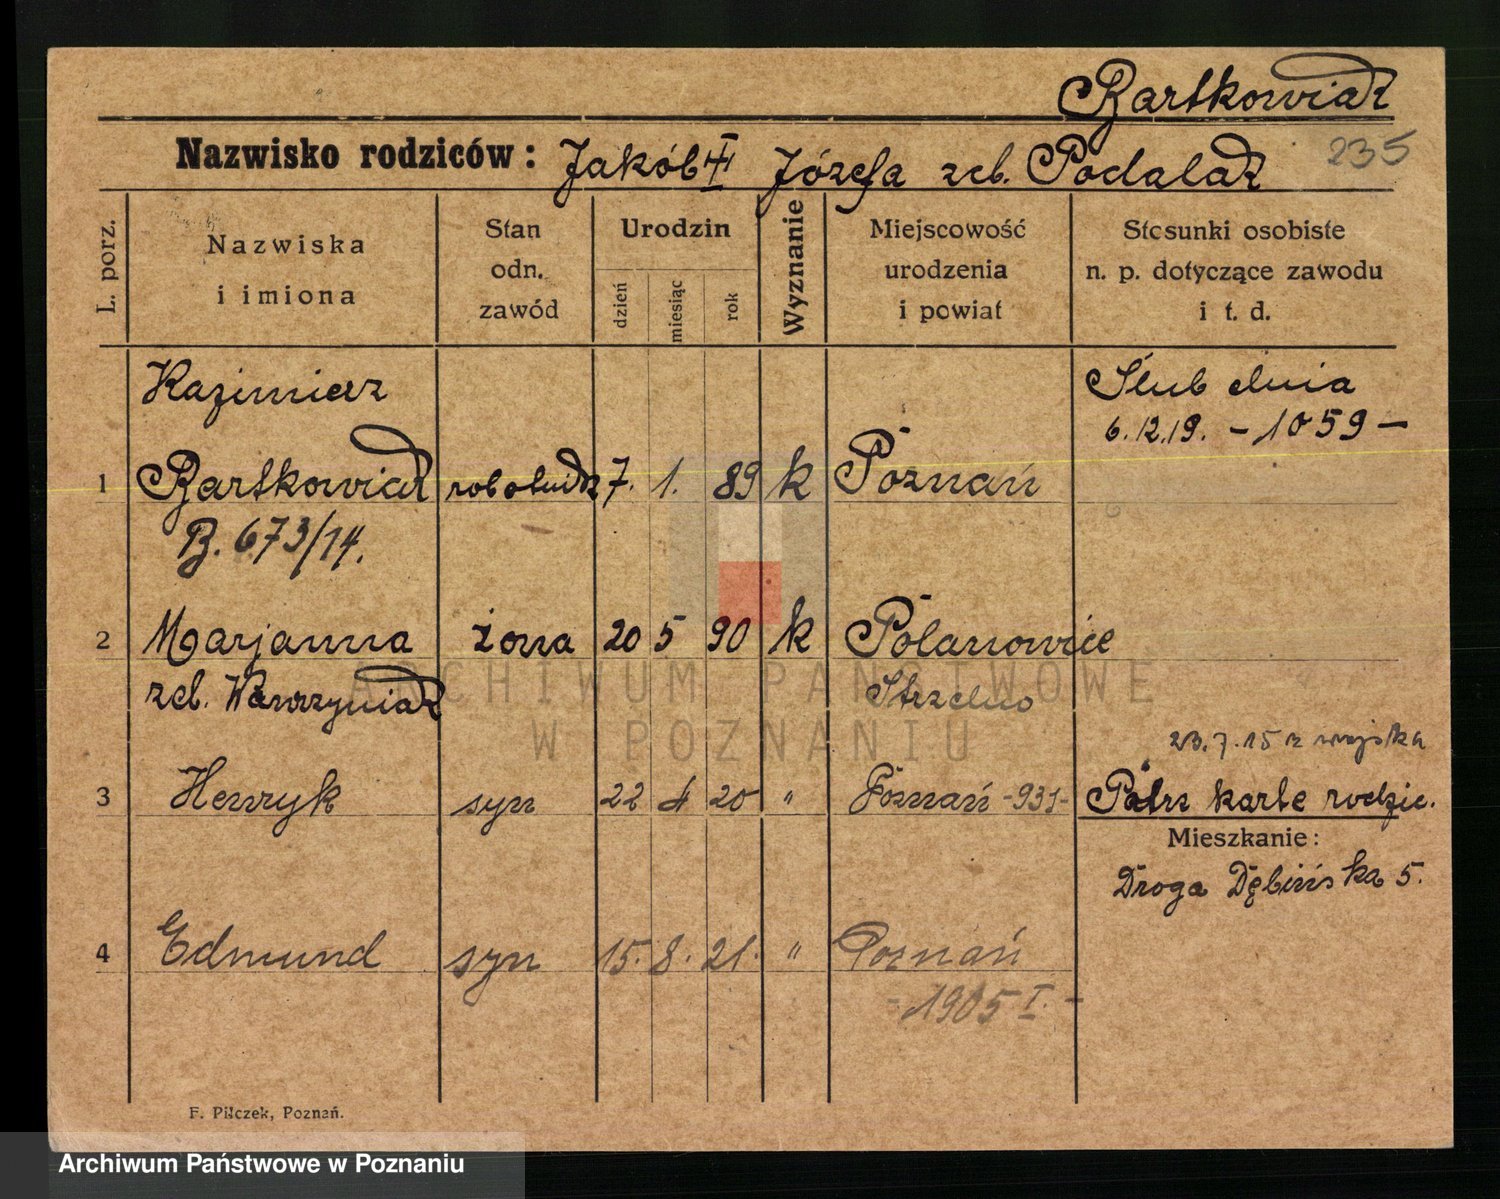 Bartkowiak
Nazwisko rodziców: Jakób Józefa zcb. Podalak 235
L. porz.
Nazwiska
i imiona
Stan
odn.
zawód
Urodzin
dzień
miesiąc
rok
Wyznanie
Miejscowość
urodzenia
i powiat
Stosunki osobiste
n. p. dotyczące zawodu
i t. d.
Kazimierz
Ślub dnia
6.12.19. - 1059 -
1 Bartkowiak 7. 1. 89 k Poznań
B. 673/14.
2 Marjanna żona 20 5 90 k Polanowice
zcb. Wawrzyniak Strzelno
23.7.15 z wojska
3 Henryk syn 22 4 20 " Poznań -931- Patrz kartę rodzic.
Mieszkanie:
Droga Dębińska 5.
4 Edmund syn 15. 8. 21. " Poznań
- 1905 I. -
F. Pilczek, Poznań.
ARCHIWUM PAŃSTWOWE
W POZNANIU
Archiwum Państwowe w Poznaniu